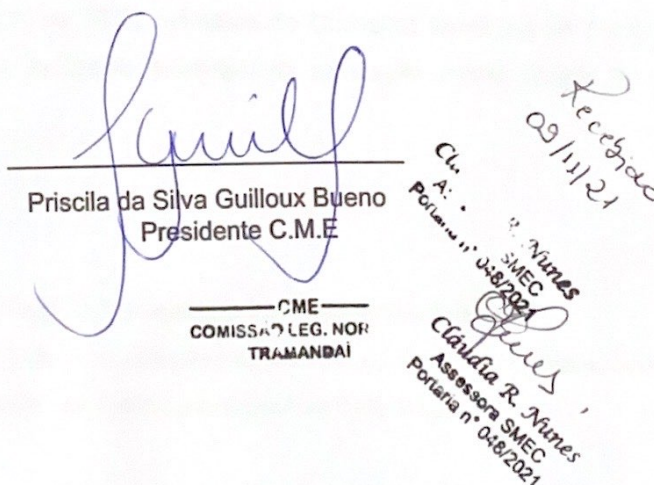 Priscila da Silva Guilloux Bueno
Presidente C.M.E
CME
COMISSÃO LEG. NOR
TRAMANDAÍ
Recebido
09/11/21
R. Nunes
SMEC
Portaria n° 048/2021
Cláudia R. Nunes
Assessora SMEC
Portaria n° 048/2021